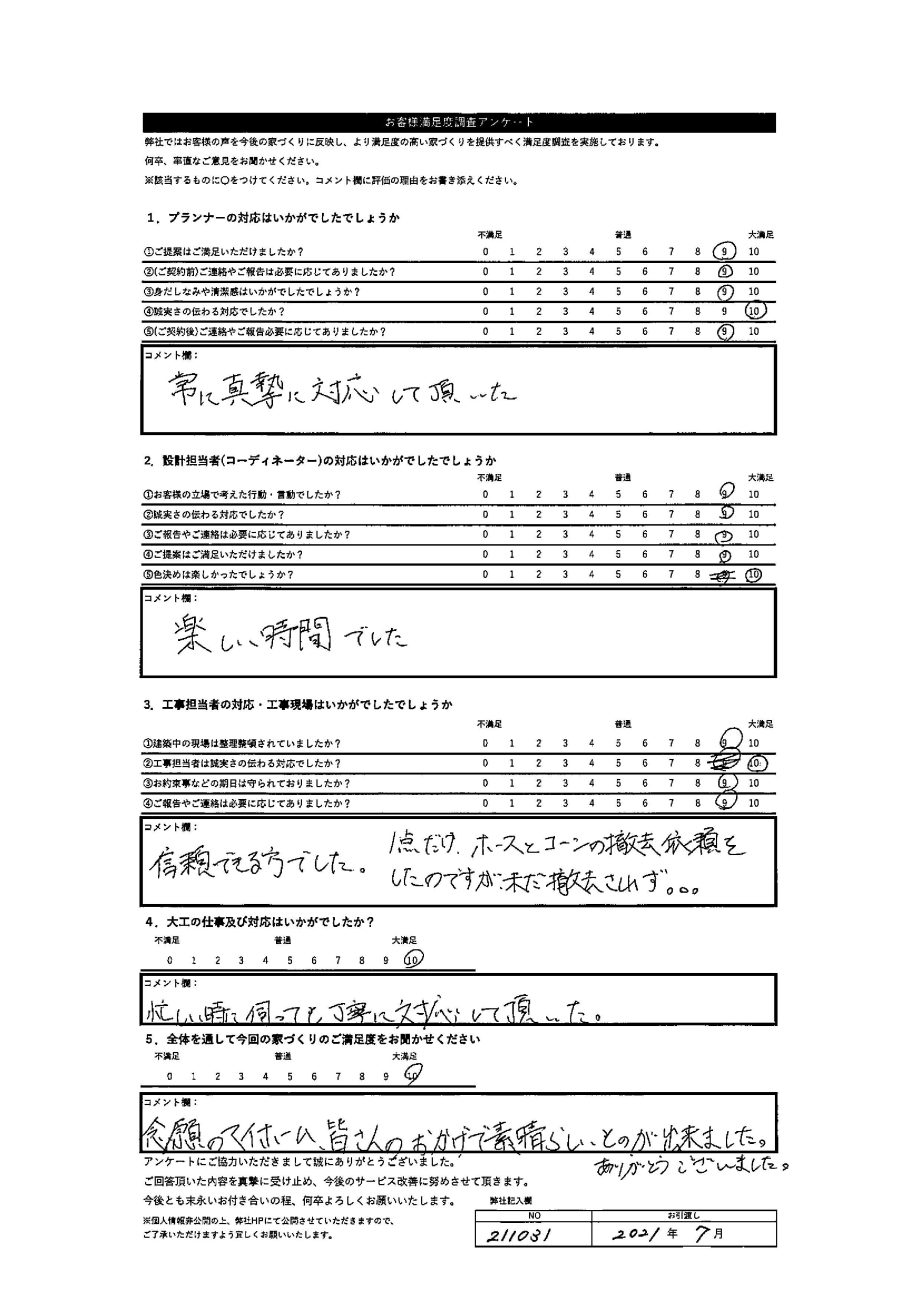 お客様満足度調査アンケート
弊社ではお客様の声を今後の家づくりに反映し、より満足度の高い家づくりを提供すべく満足度調査を実施しております。
何卒、率直なご意見をお聞かせください。
※該当するものに〇をつけてください。コメント欄に評価の理由をお書き添えください。
1．プランナーの対応はいかがでしたでしょうか
不満足 普通 大満足
①ご提案はご満足いただけましたか？ 0 1 2 3 4 5 6 7 8 9 10
②(ご契約前)ご連絡やご報告は必要に応じてありましたか？ 0 1 2 3 4 5 6 7 8 9 10
③身だしなみや清潔感はいかがでしたでしょうか？ 0 1 2 3 4 5 6 7 8 9 10
④誠実さの伝わる対応でしたか？ 0 1 2 3 4 5 6 7 8 9 10
⑤(ご契約後)ご連絡やご報告必要に応じてありましたか？ 0 1 2 3 4 5 6 7 8 9 10
コメント欄：
常に真摯に対応して頂いた
2．設計担当者(コーディネーター)の対応はいかがでしたでしょうか
不満足 普通 大満足
①お客様の立場で考えた行動・言動でしたか？ 0 1 2 3 4 5 6 7 8 9 10
②誠実さの伝わる対応でしたか？ 0 1 2 3 4 5 6 7 8 9 10
③ご報告やご連絡は必要に応じてありましたか？ 0 1 2 3 4 5 6 7 8 9 10
④ご提案はご満足いただけましたか？ 0 1 2 3 4 5 6 7 8 9 10
⑤色決めは楽しかったでしょうか？ 0 1 2 3 4 5 6 7 8 9 10
コメント欄：
楽しい時間でした
3．工事担当者の対応・工事現場はいかがでしたでしょうか
不満足 普通 大満足
①建築中の現場は整理整頓されていましたか？ 0 1 2 3 4 5 6 7 8 9 10
②工事担当者は誠実さの伝わる対応でしたか？ 0 1 2 3 4 5 6 7 8 9 10
③お約束事などの期日は守られておりましたか？ 0 1 2 3 4 5 6 7 8 9 10
④ご報告やご連絡は必要に応じてありましたか？ 0 1 2 3 4 5 6 7 8 9 10
コメント欄：
信頼できる方でした。 1点だけ、ホースとコーンの撤去依頼を
したのですが、未だ撤去されず。。。
4．大工の仕事及び対応はいかがでしたか？
不満足 普通 大満足
0 1 2 3 4 5 6 7 8 9 10
コメント欄：
忙しい時に伺っても丁寧に対応して頂いた。
5．全体を通して今回の家づくりのご満足度をお聞かせください
不満足 普通 大満足
0 1 2 3 4 5 6 7 8 9 10
コメント欄：
念願のマイホーム、皆さんのおかげで素晴らしいものが出来ました。
ありがとうございました。
アンケートにご協力いただきまして誠にありがとうございました。
ご回答頂いた内容を真摯に受け止め、今後のサービス改善に努めさせて頂きます。
今後とも末永いお付き合いの程、何卒よろしくお願いいたします。
※個人情報非公開の上、弊社HPにて公開させていただきますので、
ご了承いただけますよう宜しくお願いいたします。
弊社記入欄
NO お引渡し
211031 2021年7月